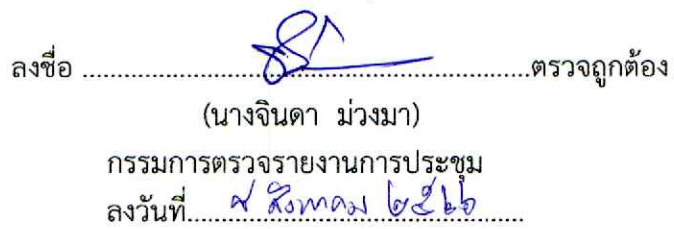 ลงชื่อ ................................................ตรวจถูกต้อง
(นางจินดา ม่วงมา)
กรรมการตรวจรายงานการประชุม
ลงวันที่.... ๙ สิงหาคม ๒๕๖๖ ....